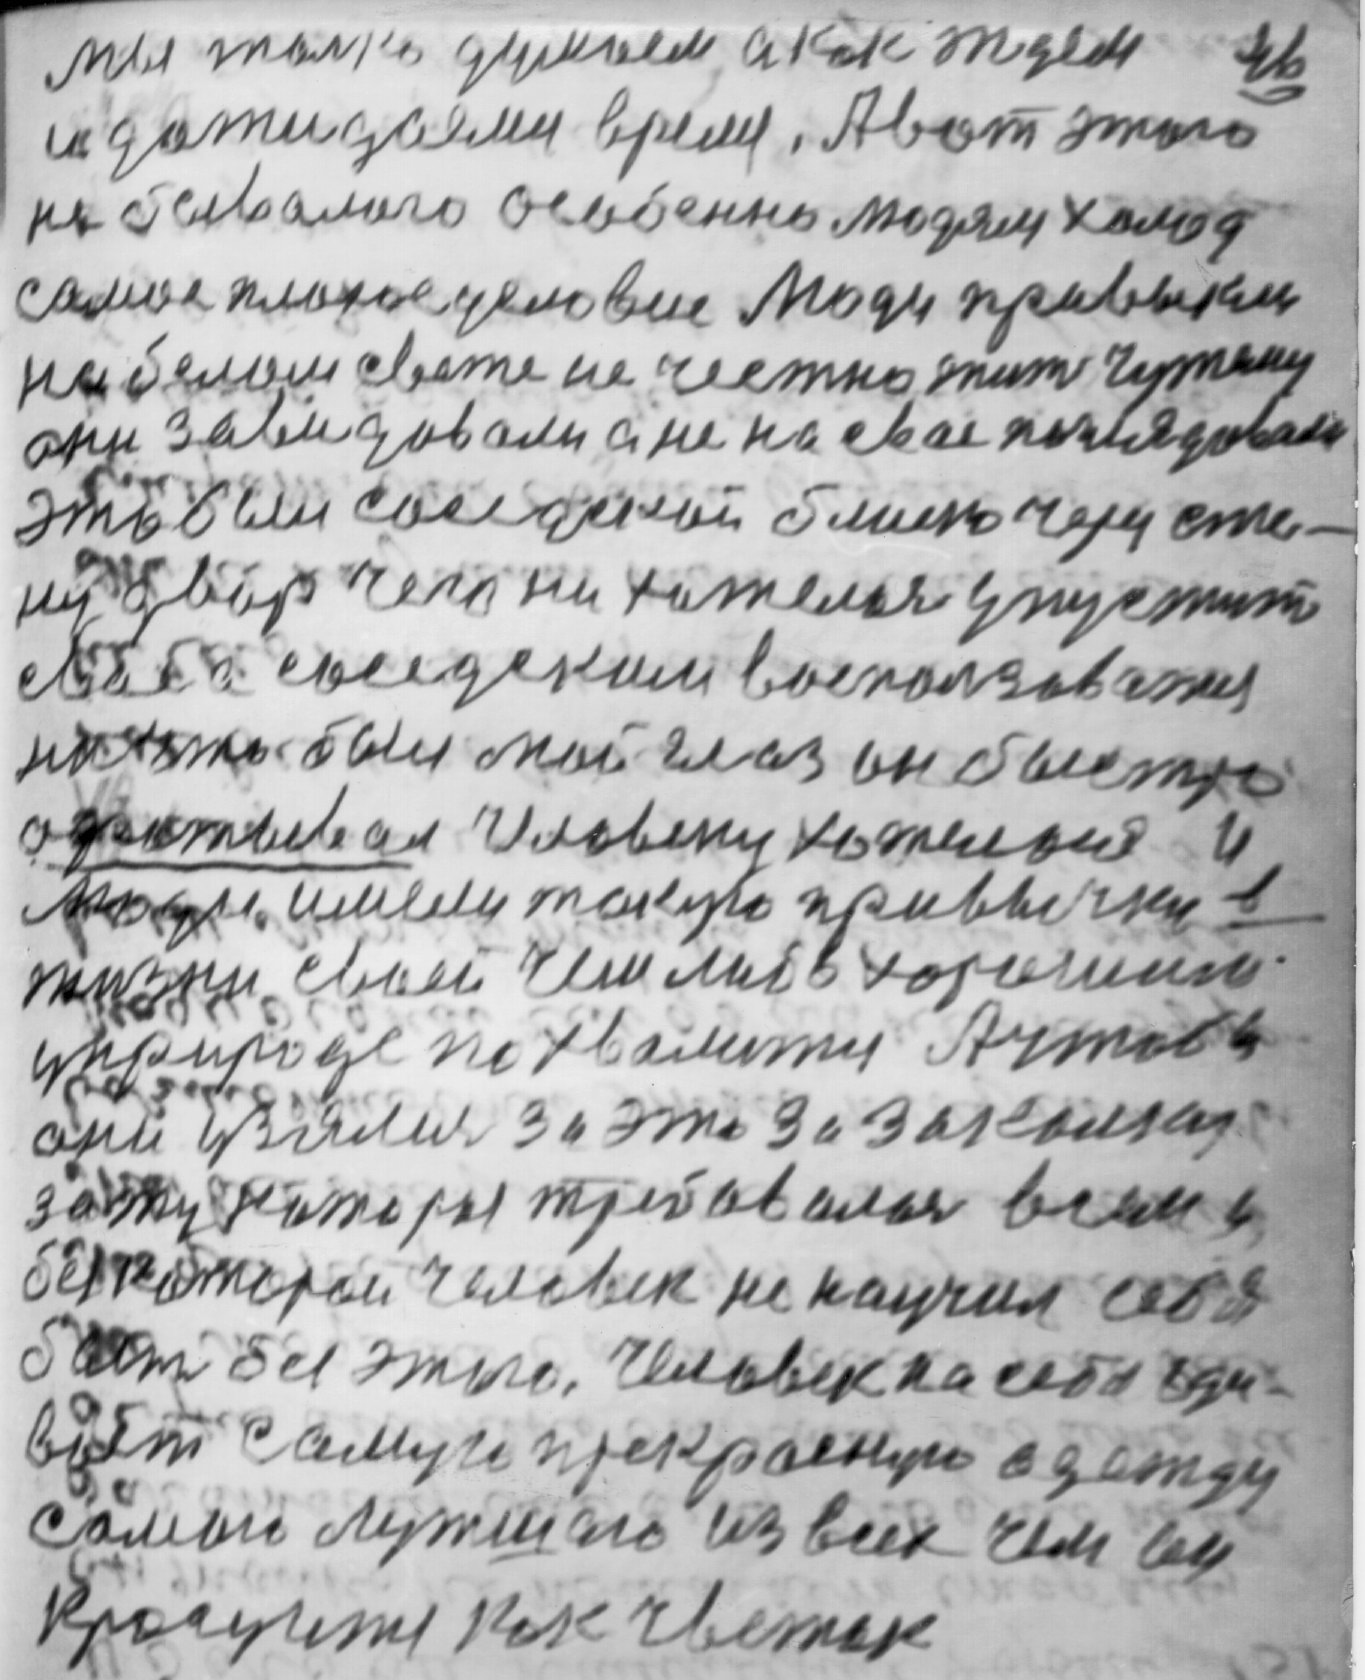 мы толко думаем, а как ждем 46
и дожидаеми время. А вот этого
небывалого особенно людям холод
самое плохое условие Люди привыкли
на белом свете не честно жит чужому
они завидовали а не на свае поглядовали
это был соседский близко через сте-
ну двор чего ни хотелося упустит
соседским воспользоватця
был мой глаз он быстро
Человеку хотелося и
Люди имели такую привычку в
жизни своей чем либо хорошим
у природе похвалитця А чтобы
они узялися за это за закалку
за ту которая требовалася всем и
без которой Человек не научил себя
быть без этого. Человек на себя оди-
вает самую прекрасную одежду
самого лутшаго из всех чем он
красуитця как Цветок